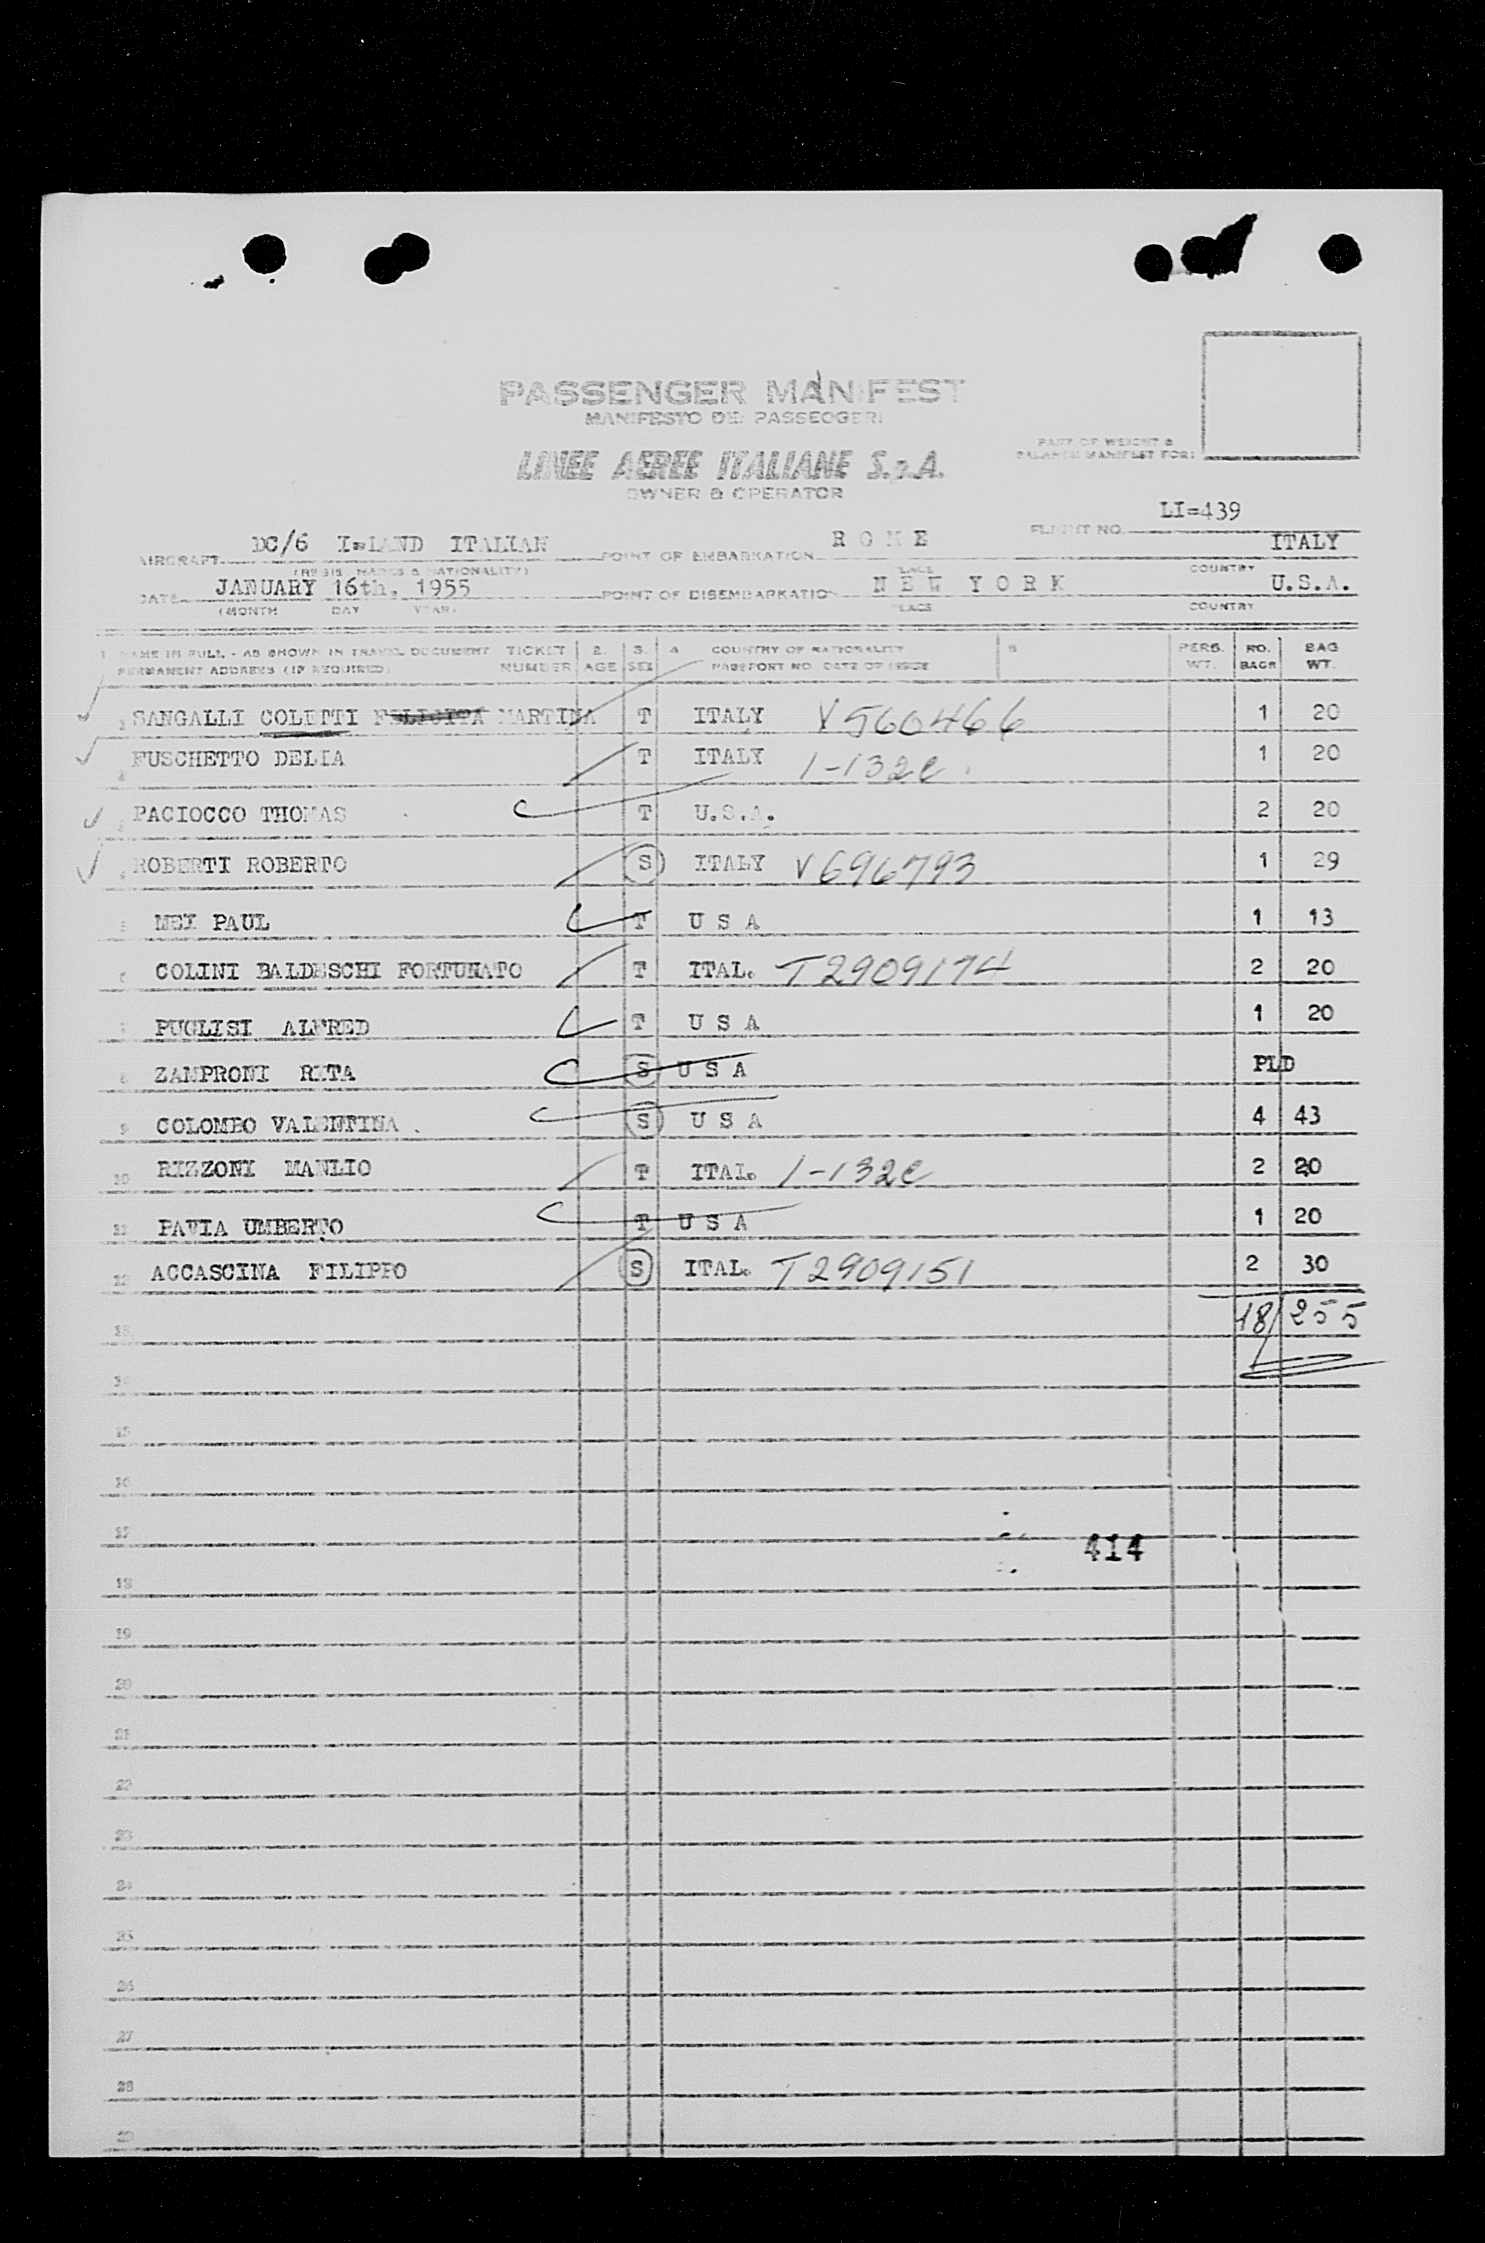 PASSENGER MANIFEST
MANIFESTO DEI PASSEGGERI
LINEE AEREE ITALIANE S.p.A.
OWNER & OPERATOR
PART OF WEIGHT &
BALANCE MANIFEST FOR:
FLIGHT NO. LI=439
AIRCRAFT DC/6 I=LAND ITALIAN POINT OF EMBARKATION R O M E ITALY
(REGIS. MARKS & NATIONALITY) PLACE COUNTRY
DATE JANUARY 16th. 1955 POINT OF DISEMBARKATION N E W Y O R K U.S.A.
(MONTH DAY YEAR) PLACE COUNTRY
1. NAME IN FULL - AS SHOWN IN TRAVEL DOCUMENT TICKET 2. 3. 4 COUNTRY OF NATIONALITY 5 PERS. NO. BAG
PERMANENT ADDRESS (IF REQUIRED) NUMBER AGE SEX PASSPORT NO. DATE OF ISSUE WT. BAGS WT.
SANGALLI COLETTI FELICITA MARTINA T ITALY V560466 1 20
FUSCHETTO DELIA T ITALY 1-132c. 1 20
PACIOCCO THOMAS T U.S.A. 2 20
ROBERTI ROBERTO S ITALY V696793 1 29
5 MEI PAUL T U S A 1 13
6 COLINI BALDESCHI FORTUNATO T ITAL. T2909174 2 20
7 PUGLISI ALFRED T U S A 1 20
8 ZAMPRONI RITA S U S A PLD
9 COLOMBO VALENTINA. S U S A 4 43
10 RIZZONI MANLIO T ITAL. 1-132c 2 20
11 PAVIA UMBERTO T U S A 1 20
12 ACCASCINA FILIPPO S ITAL. T2909151 2 30
13. 18/ 255
14
15
16
17 414
18
19
20
21
22
23
24
25
26
27
28
29